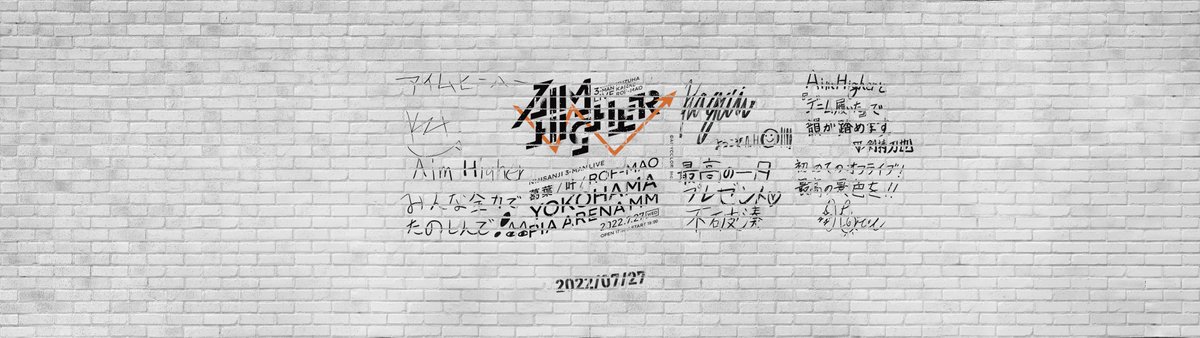 アイムヒーハー
Aim Higher
みんな全力で
たのしんで!
AIM
HIGHER
3-MAN
LIVE ROF-MAO
NIJISANJI 3-MAN LIVE
葛葉/叶/ROF-MAO
YOKOHAMA
PIA ARENA MM
2022.7.27 WED
OPEN START
2022/07/27
ようこそ
最高の一日
プレゼント♡
不破湊
Aim Higherと
デニム履いたで
韻が踏めます
剣持刀也
初めてのオフライブ!
最高の景色を!!